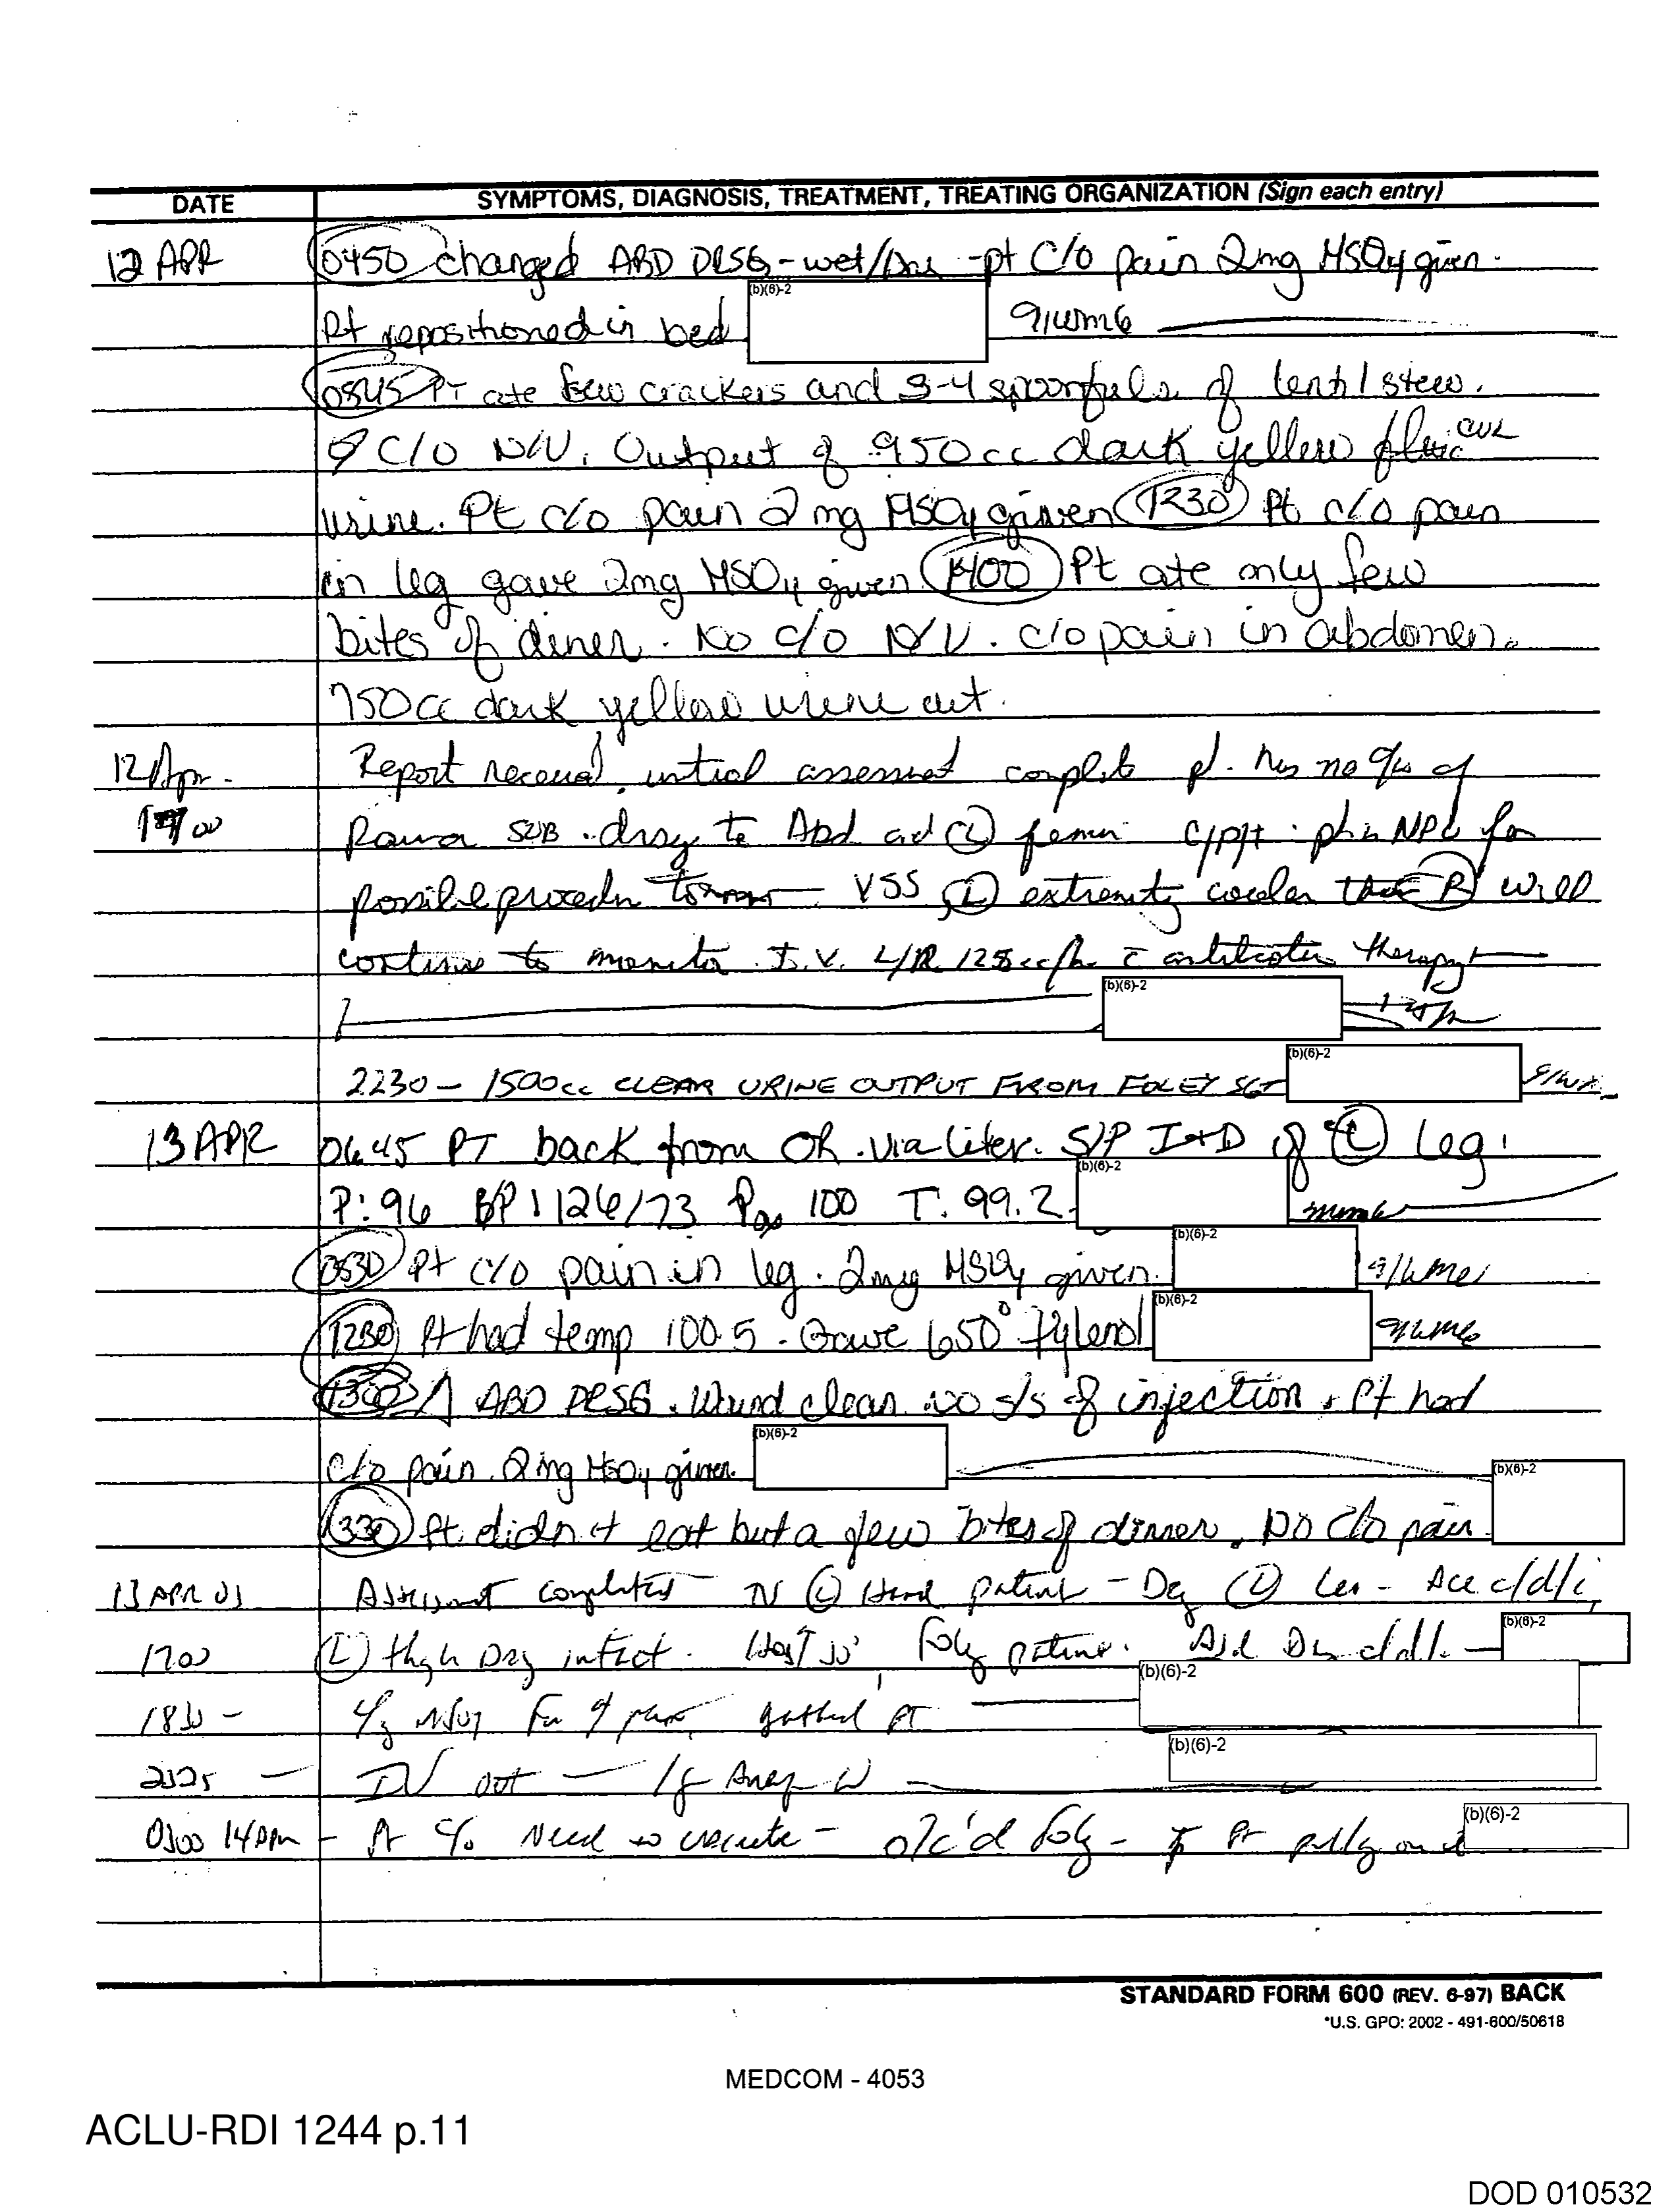 DATE SYMPTOMS, DIAGNOSIS, TREATMENT, TREATING ORGANIZATION (Sign each entry)
12 APR 0450 changed ABD DRSG - wet/ - pt C/O pain 2mg MSO4 given.
Pt repositioned in bed (b)(6)-2 91WM6
0845 PT ate few crackers and 3-4 spoonfuls of lentil stew.
C/O N/V. Output of 950cc dark yellow
urine. Pt c/o pain 2 mg MSO4 given 1230 Pt c/o pain
in leg gave 2mg MSO4 given 1400 Pt ate only few
bites of diner. No c/o N/V. c/o pain in abdomen.
750cc dark yellow urine out.
12 Apr. Report received, initial assessment complete pt. has no c/o of
1900 SOB. drsg to Abd ad (L) femur pt is NPO for
possible procedure VSS (L) extremity cooler than (R) will
continue to monitor. I.V. L/R 125cc/hr c therapy
(b)(6)-2
2230 - 1500cc CLEAR URINE OUTPUT FROM FOLEY SGT (b)(6)-2
13 APR 0645 PT back from OR. via liter. S/P I+D of (L) leg.
P: 96 BP: 126/73 100 T. 99.2 (b)(6)-2
0830 Pt c/o pain in leg. 2mg MSO4 given. (b)(6)-2 91WM6
1230 Pt had temp 100.5 - Gave 650 Tylenol (b)(6)-2 91WM6
1300 ABD DRSG. Wound clean no s/s of injection. Pt had
c/o pain. 2mg MSO4 given. (b)(6)-2
1330 Pt. didn't eat but a few bites of dinner. No c/o pain. (b)(6)-2
13 APR 03 Assessment completed - IV (L) Hand patent - (L) Ace c/d/i,
1700 (L) thigh Dsg intact. Foley patent. Abd c/d/i. (b)(6)-2
1830 - For pain (b)(6)-2
IV out - (b)(6)-2
0300 14 Apr - Pt c/o Need to - d/c'd Foley - Pt on it (b)(6)-2
STANDARD FORM 600 (REV. 6-97) BACK
*U.S. GPO: 2002 - 491-600/50618
MEDCOM - 4053
ACLU-RDI 1244 p.11
DOD 010532